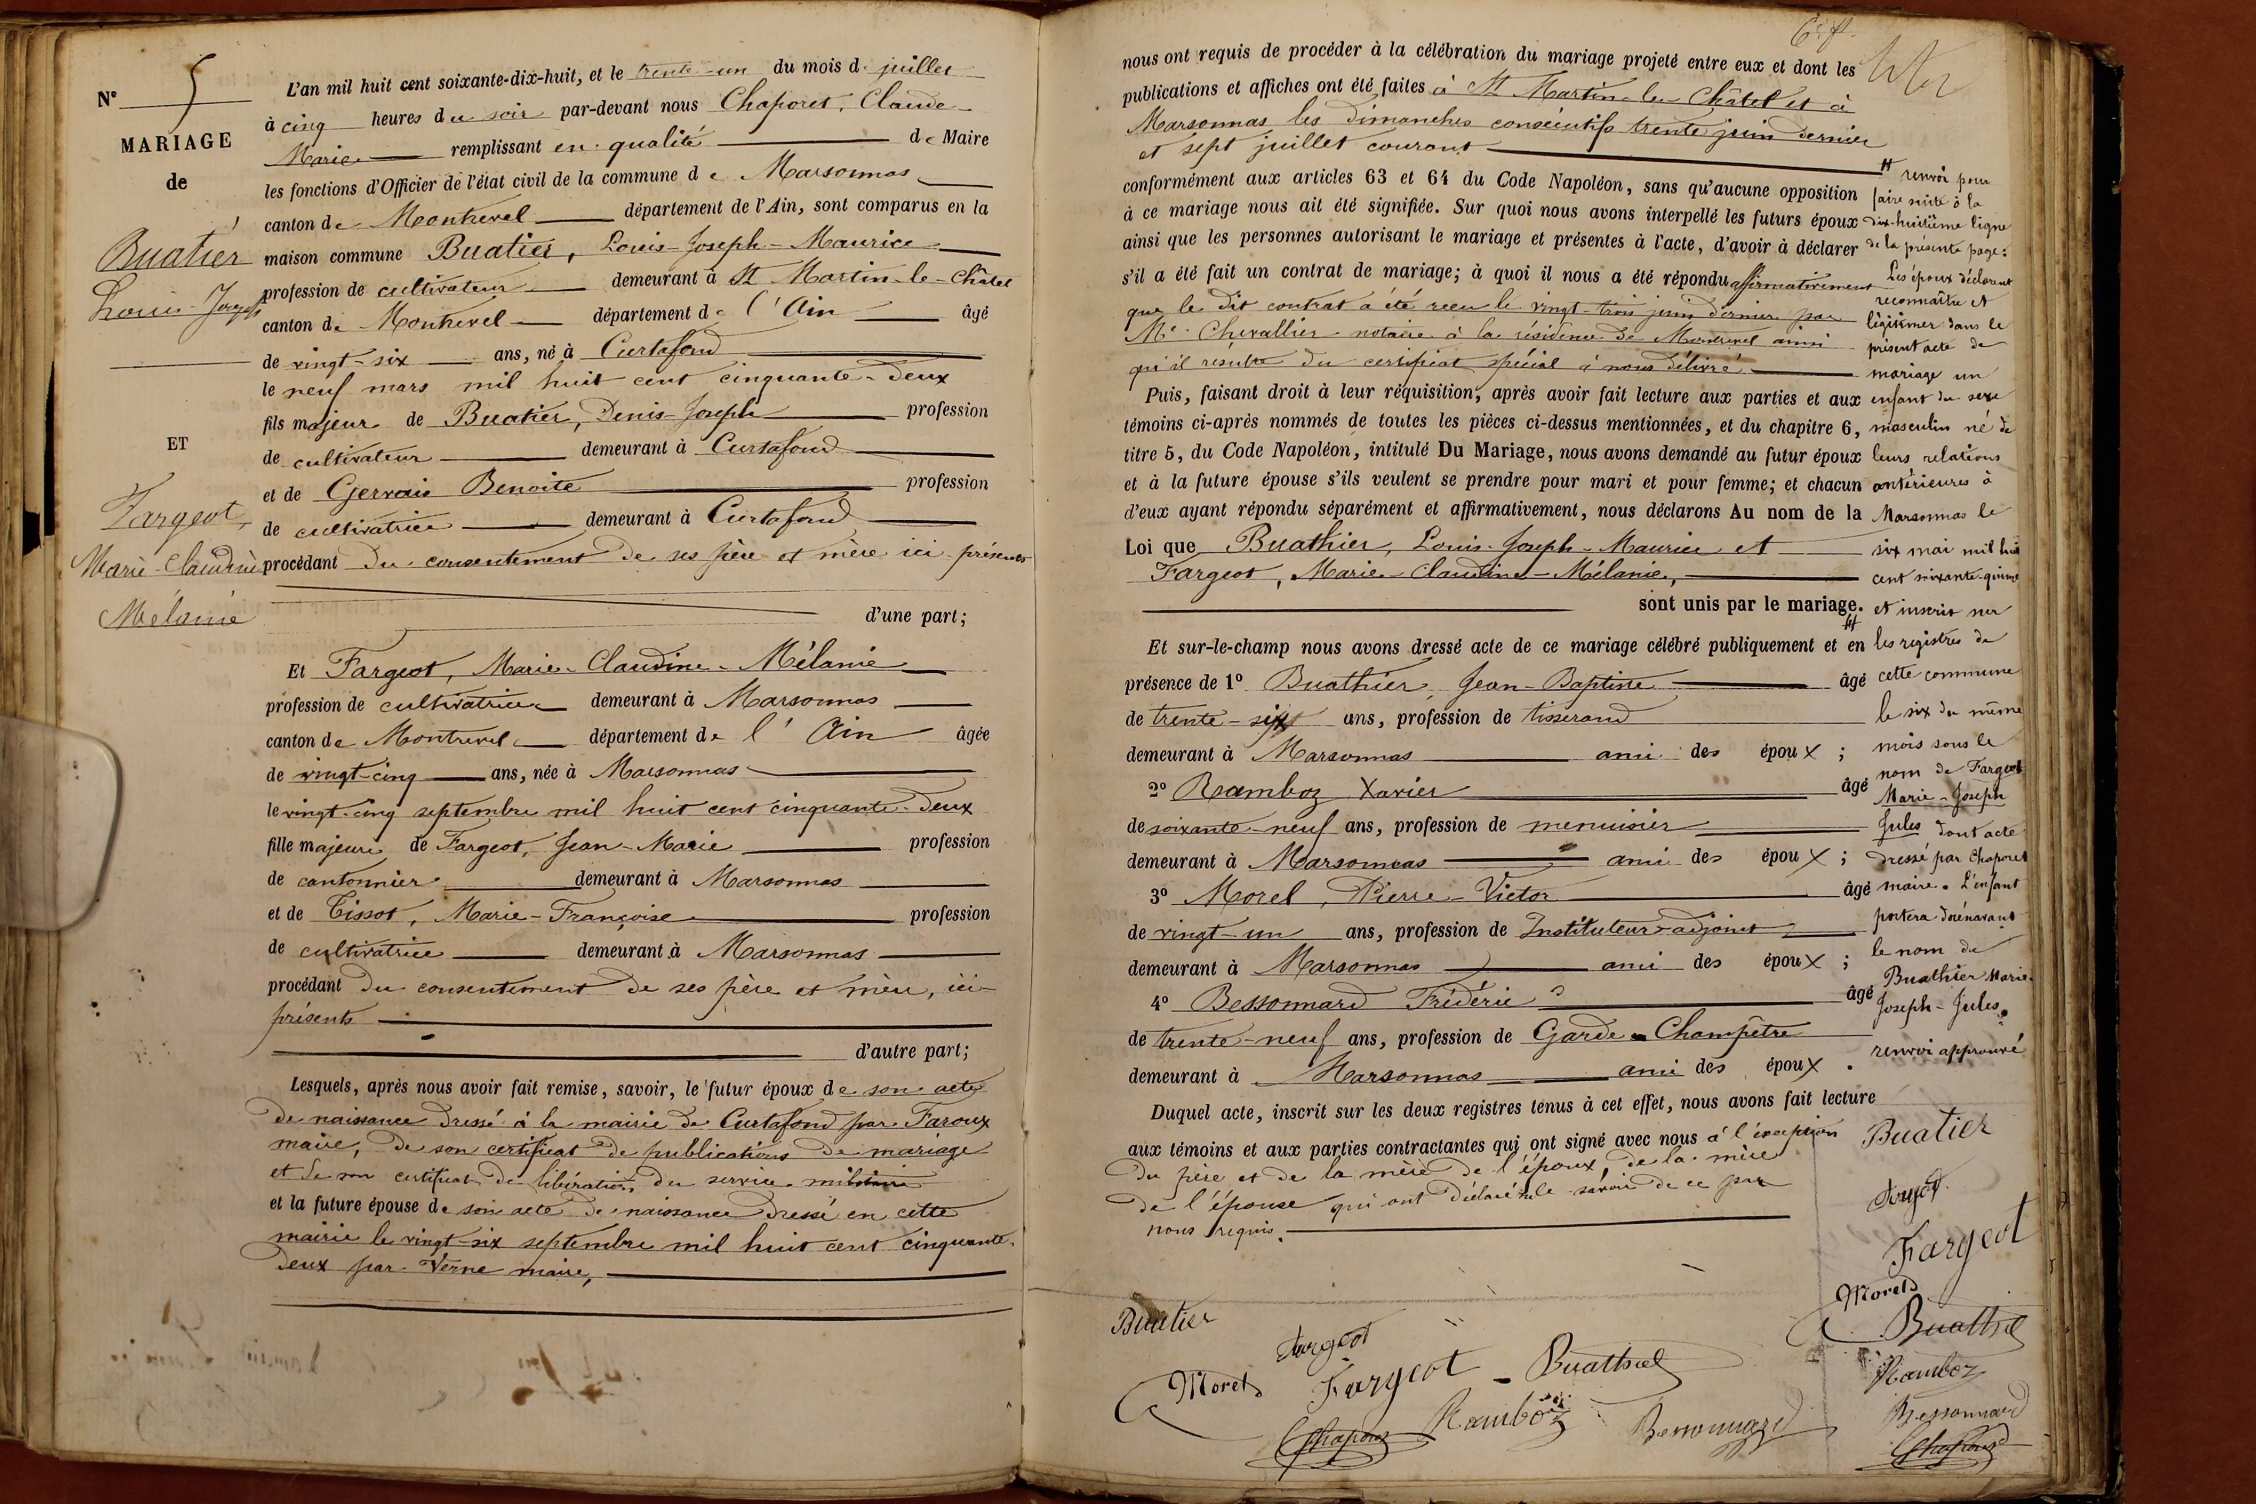 N° 5
MARIAGE
de
Buatier
Louis-Joseph
ET
Fargeot,
Marie-Claudine
Mélanie
L'an mil huit cent soixante-dix-huit, et le trente-un du mois de juillet
à cinq heures du soir par-devant nous Chaporet, Claude
Marie remplissant en qualité de Maire
les fonctions d'Officier de l'état civil de la commune de Marsonnas
canton de Montrevel département de l'Ain, sont comparus en la
maison commune Buatier, Louis-Joseph-Maurice
profession de cultivateur demeurant à St Martin-le-Châtel
canton de Montrevel département de l'Ain âgé
de vingt-six ans, né à Curtafond
le neuf mars mil huit cent cinquante-deux
fils majeur de Buatier, Denis-Joseph profession
de cultivateur demeurant à Curtafond
et de Gervais Benoite profession
de cultivatrice demeurant à Curtafond
procédant du consentement de ses père et mère ici présents
d'une part;
Et Fargeot, Marie-Claudine-Mélanie
profession de cultivatrice demeurant à Marsonnas
canton de Montrevel département de l'Ain âgée
de vingt-cinq ans, née à Marsonnas
le vingt-cinq septembre mil huit cent cinquante-deux
fille majeure de Fargeot, Jean-Marie profession
de cantonnier demeurant à Marsonnas
et de Tissot, Marie-Françoise profession
de cultivatrice demeurant à Marsonnas
procédant du consentement de ses père et mère, ici
présents
d'autre part;
Lesquels, après nous avoir fait remise, savoir, le futur époux de son acte
de naissance dressé à la mairie de Curtafond par Faroux
maire, de son certificat de publications de mariage
et de son certificat de libération du service militaire
et la future épouse de son acte de naissance dressé en cette
mairie le vingt-six septembre mil huit cent cinquante-
deux par Verne maire,
nous ont requis de procéder à la célébration du mariage projeté entre eux et dont les
publications et affiches ont été faites à St Martin-le-Châtel et à
Marsonnas les dimanches consécutifs trente juin dernier
et sept juillet courant
conformément aux articles 63 et 64 du Code Napoléon, sans qu'aucune opposition
à ce mariage nous ait été signifiée. Sur quoi nous avons interpellé les futurs époux
ainsi que les personnes autorisant le mariage et présentes à l'acte, d'avoir à déclarer
s'il a été fait un contrat de mariage; à quoi il nous a été répondu affirmativement
que le dit contrat a été reçu le vingt-trois juin dernier par
Me Chevallier notaire à la résidence de Montrevel ainsi
qu'il resulte du certificat spécial à nous délivré
Puis, faisant droit à leur réquisition, après avoir fait lecture aux parties et aux
témoins ci-après nommés de toutes les pièces ci-dessus mentionnées, et du chapitre 6,
titre 5, du Code Napoléon, intitulé Du Mariage, nous avons demandé au futur époux
et à la future épouse s'ils veulent se prendre pour mari et pour femme; et chacun
d'eux ayant répondu séparément et affirmativement, nous déclarons Au nom de la
Loi que Buathier, Louis-Joseph-Maurice et
Fargeot, Marie-Claudine-Mélanie,
sont unis par le mariage.
Et sur-le-champ nous avons dressé acte de ce mariage célébré publiquement et en
présence de 1° Buathier, Jean-Baptiste âgé
de trente-six ans, profession de tisserand
demeurant à Marsonnas ami des époux ;
2° Ramboz Xavier âgé
de soixante-neuf ans, profession de menuisier
demeurant à Marsonnas ami des époux ;
3° Morel, Pierre-Victor âgé
de vingt-un ans, profession de Instituteur-adjoint
demeurant à Marsonnas ami des époux ;
4° Bessonnard Frédéric âgé
de trente-neuf ans, profession de Garde-Champêtre
demeurant à Marsonnas ami des époux .
Duquel acte, inscrit sur les deux registres tenus à cet effet, nous avons fait lecture
aux témoins et aux parties contractantes qui ont signé avec nous à l'exception
du père et de la mère de l'époux, de la mère
de l'épouse qui ont déclaré ne le savoir de ce par
nous requis.
Buatier
Fargeot
Morel Fargeot Buathier
Chaporet Ramboz Bessonnard
renvoi pour
faire suite à la
dix-huitième ligne
de la présente page:
Les époux déclarent
reconnaître et
légitimer dans le
présent acte de
mariage un
enfant du sexe
masculin né de
leurs relations
antérieures à
Marsonnas le
six mai mil huit
cent soixante-quinze
et inscrit sur
les registres de
cette commune
le six du même
mois sous le
nom de Fargeot
Marie-Joseph
Jules dont acte
dressé par Chaporet
maire. L'enfant
portera dorénavant
le nom de
Buathier Marie-
Joseph-Jules.
renvoi approuvé
Buatier
Fargeot
Fargeot
Morel
Buathier
Ramboz
Bessonnard
Chaporet